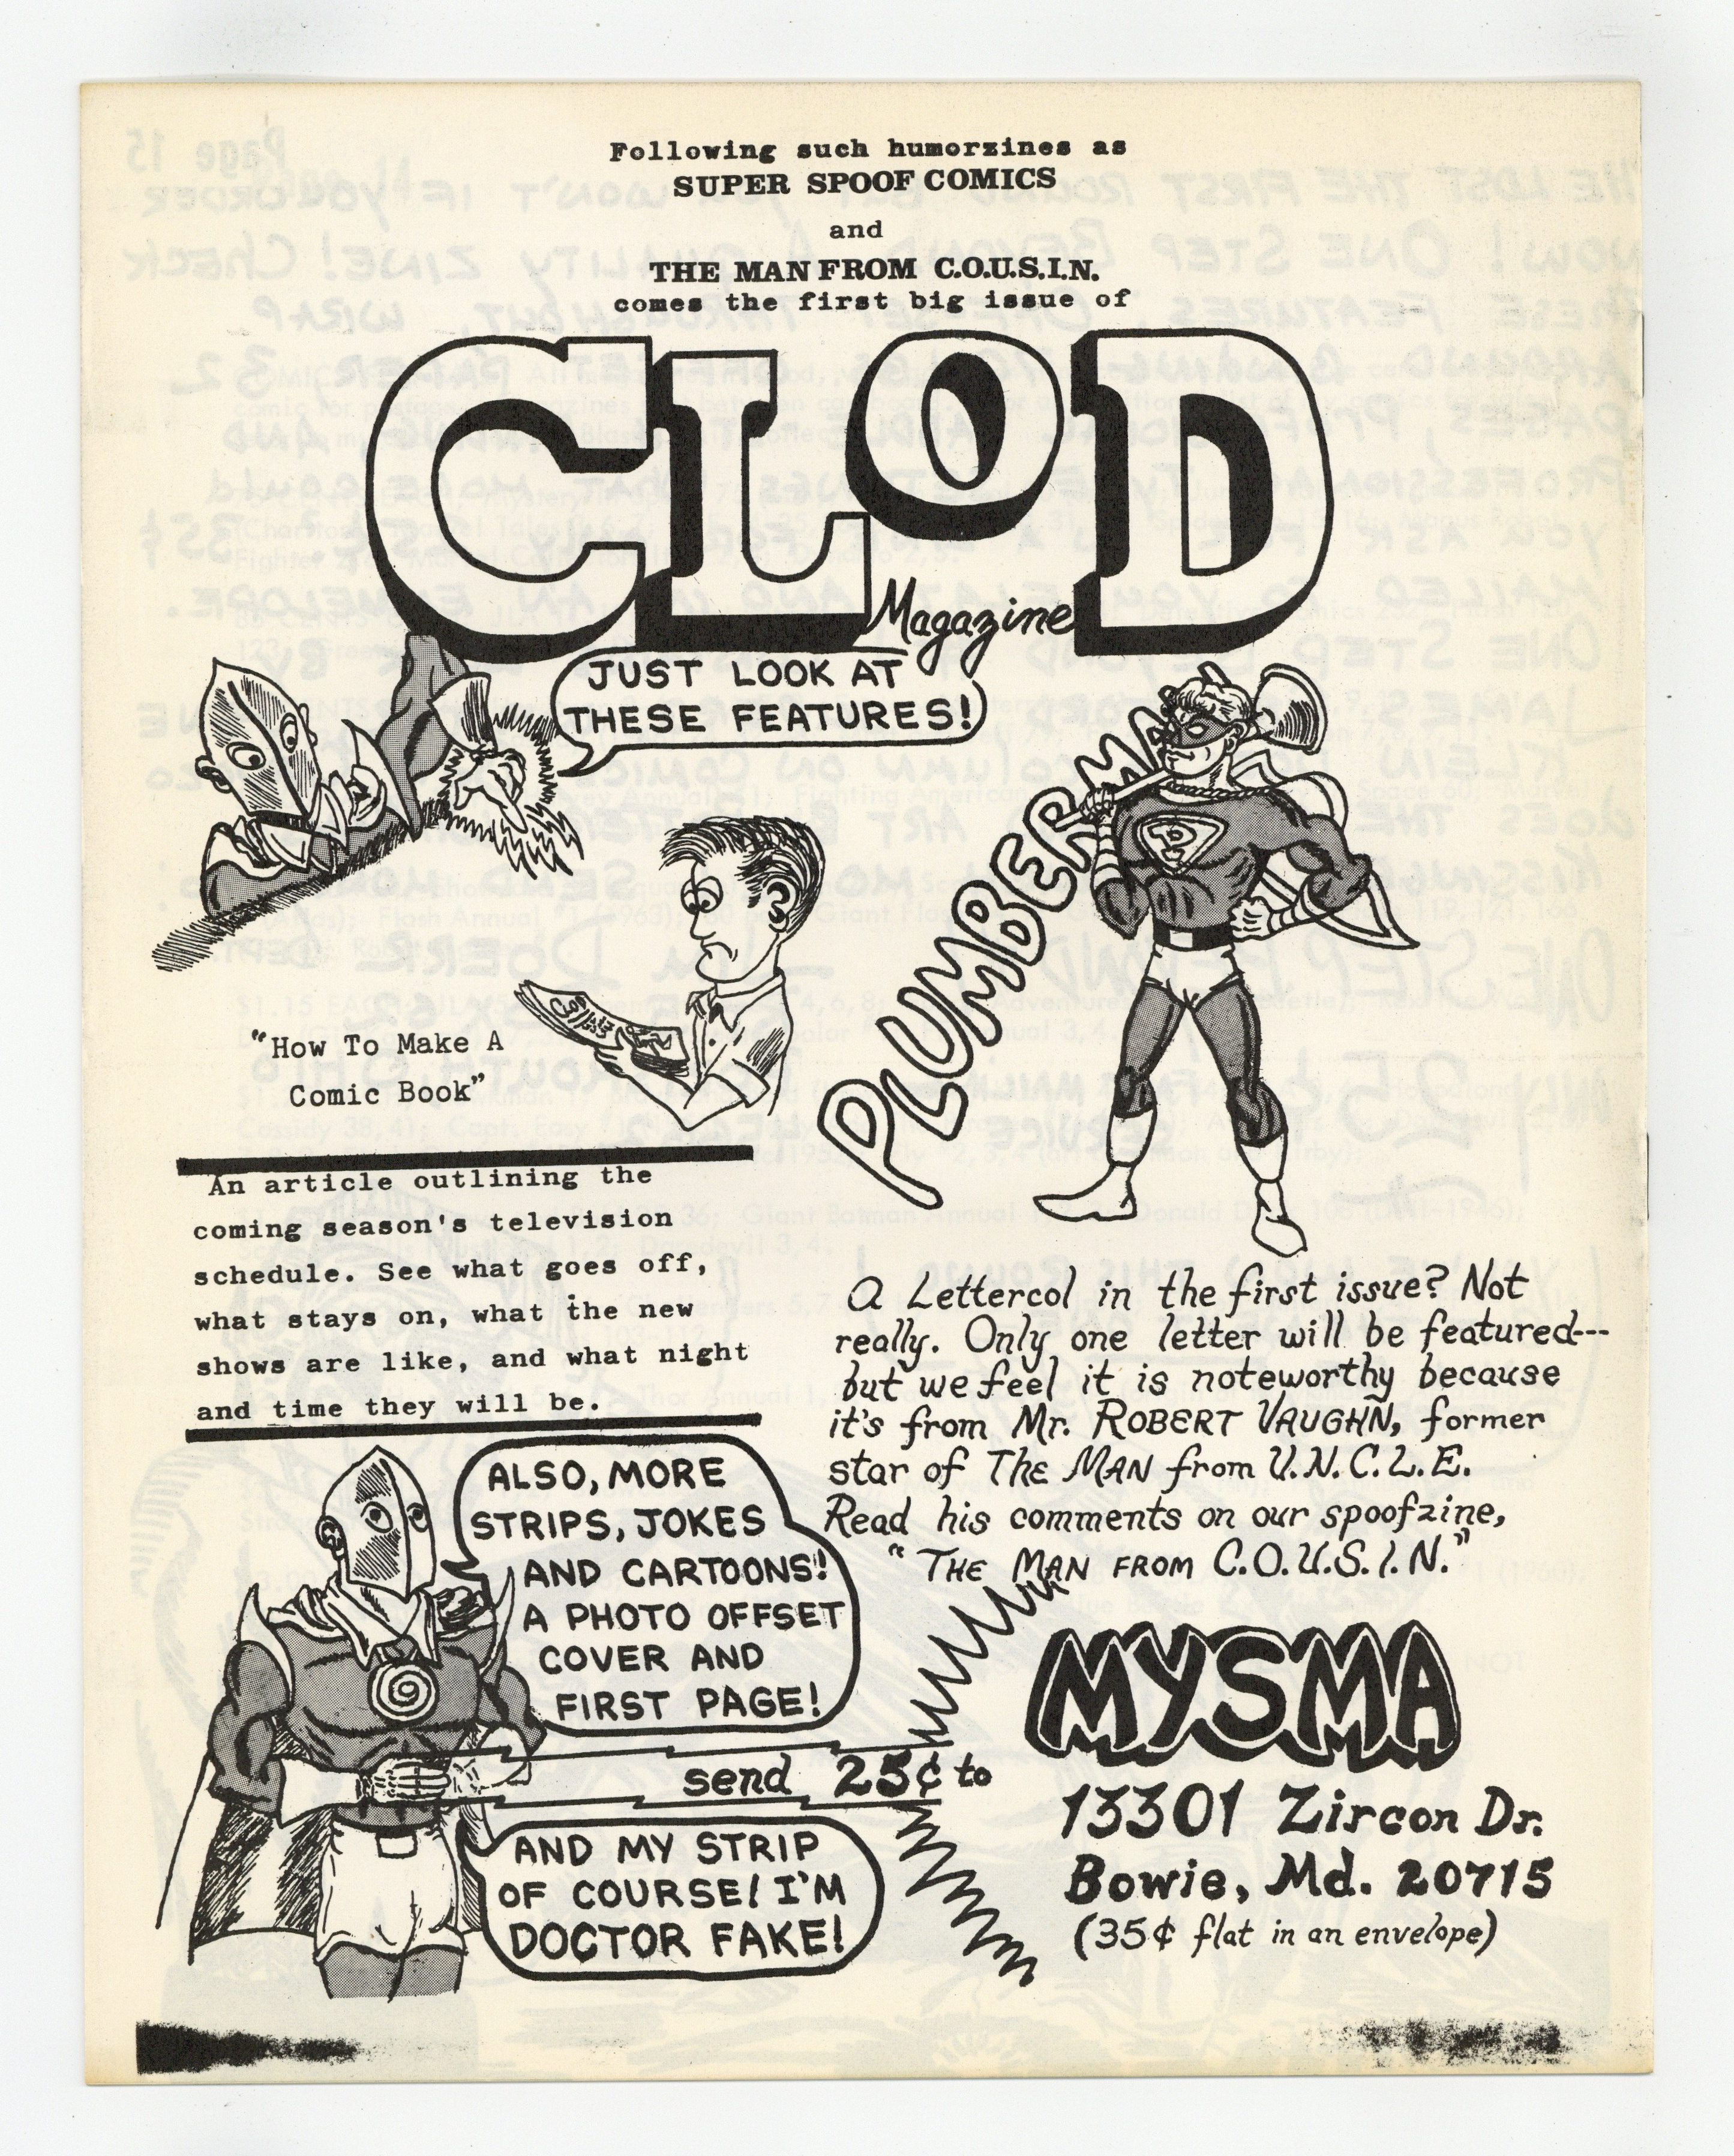 Following such humorzines as
SUPER SPOOF COMICS
and
THE MAN FROM C.O.U.S.I.N.
comes the first big issue of
CLOD
Magazine
JUST LOOK AT
THESE FEATURES!
PLUMBERMAN
"How To Make A
Comic Book"
An article outlining the
coming season's television
schedule. See what goes off,
what stays on, what the new
shows are like, and what night
and time they will be.
A Lettercol in the first issue? Not
really. Only one letter will be featured---
but we feel it is noteworthy because
it's from Mr. ROBERT VAUGHN, former
star of THE MAN from U.N.C.L.E.
Read his comments on our spoofzine,
"THE MAN FROM C.O.U.S.I.N."
ALSO, MORE
STRIPS, JOKES
AND CARTOONS!
A PHOTO OFFSET
COVER AND
FIRST PAGE!
send 25¢ to
AND MY STRIP
OF COURSE! I'M
DOCTOR FAKE!
MYSMA
13301 Zircon Dr.
Bowie, Md. 20715
(35¢ flat in an envelope)